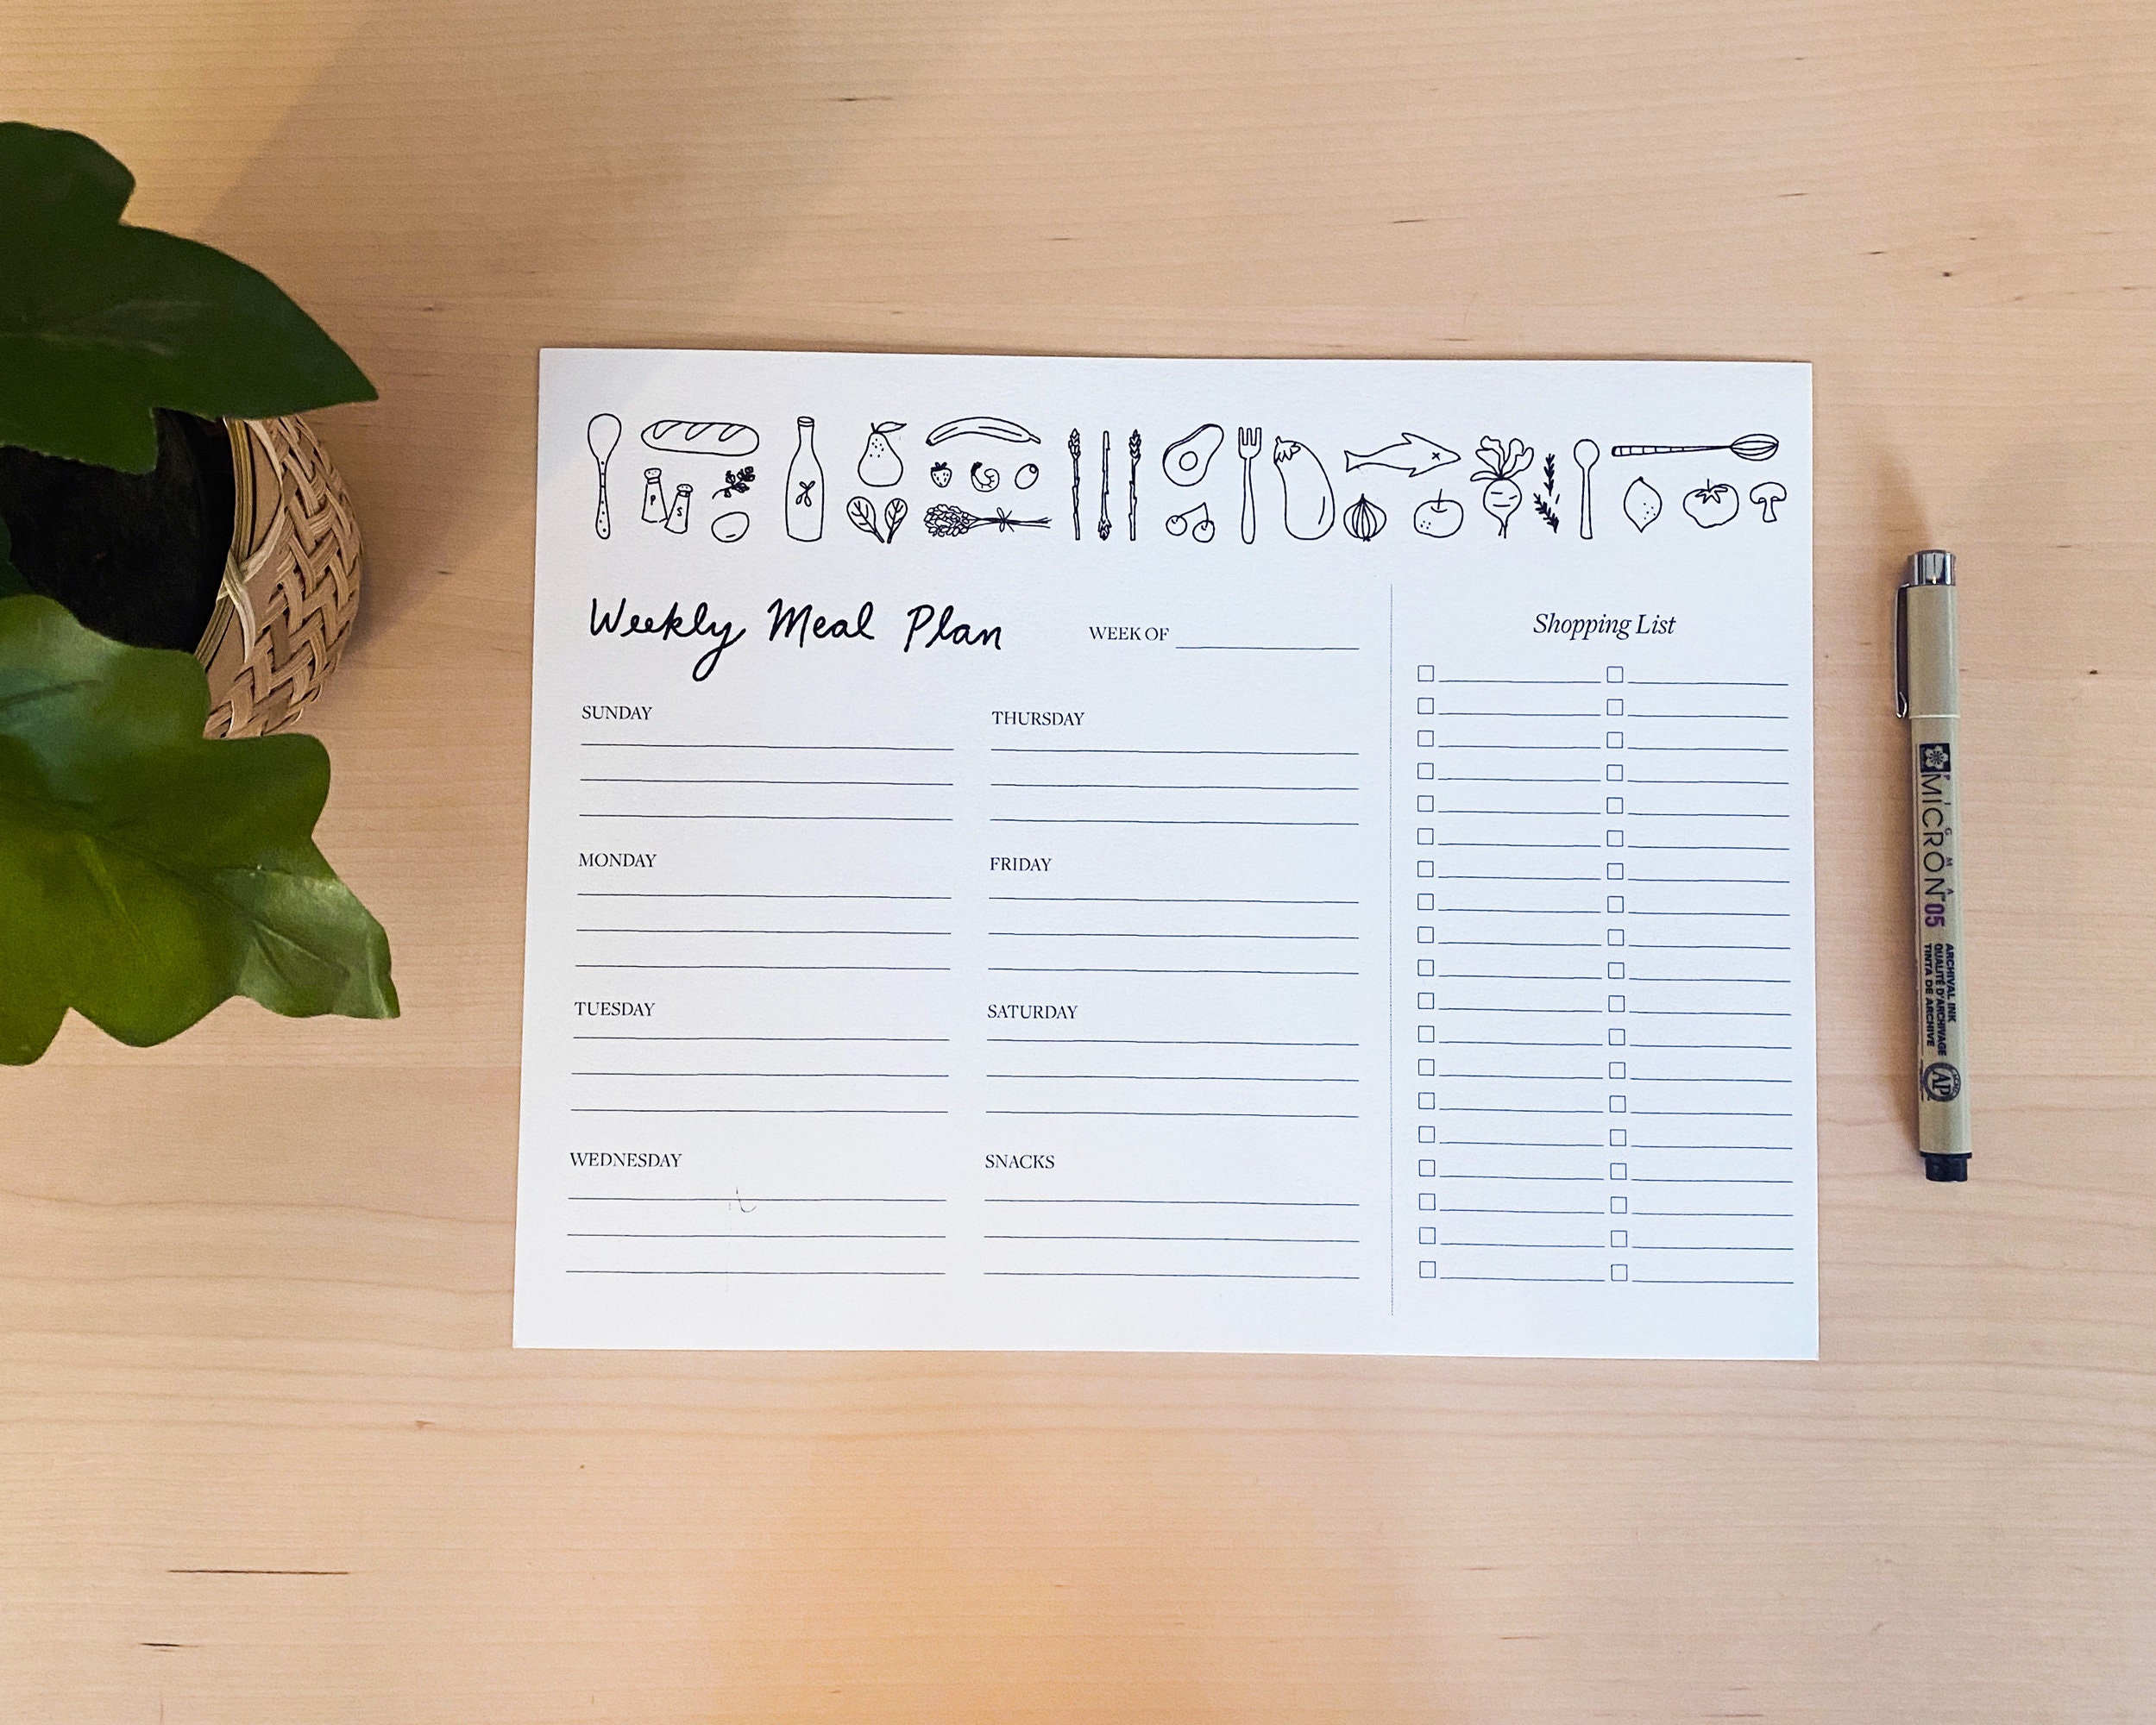 P
S
Weekly Meal Plan
WEEK OF
SUNDAY
MONDAY
TUESDAY
WEDNESDAY
THURSDAY
FRIDAY
SATURDAY
SNACKS
Shopping List
PIGMA
MICRON 05
ARCHIVAL INK
QUALITÉ D'ARCHIVAGE
TINTA DE ARCHIVE
AP